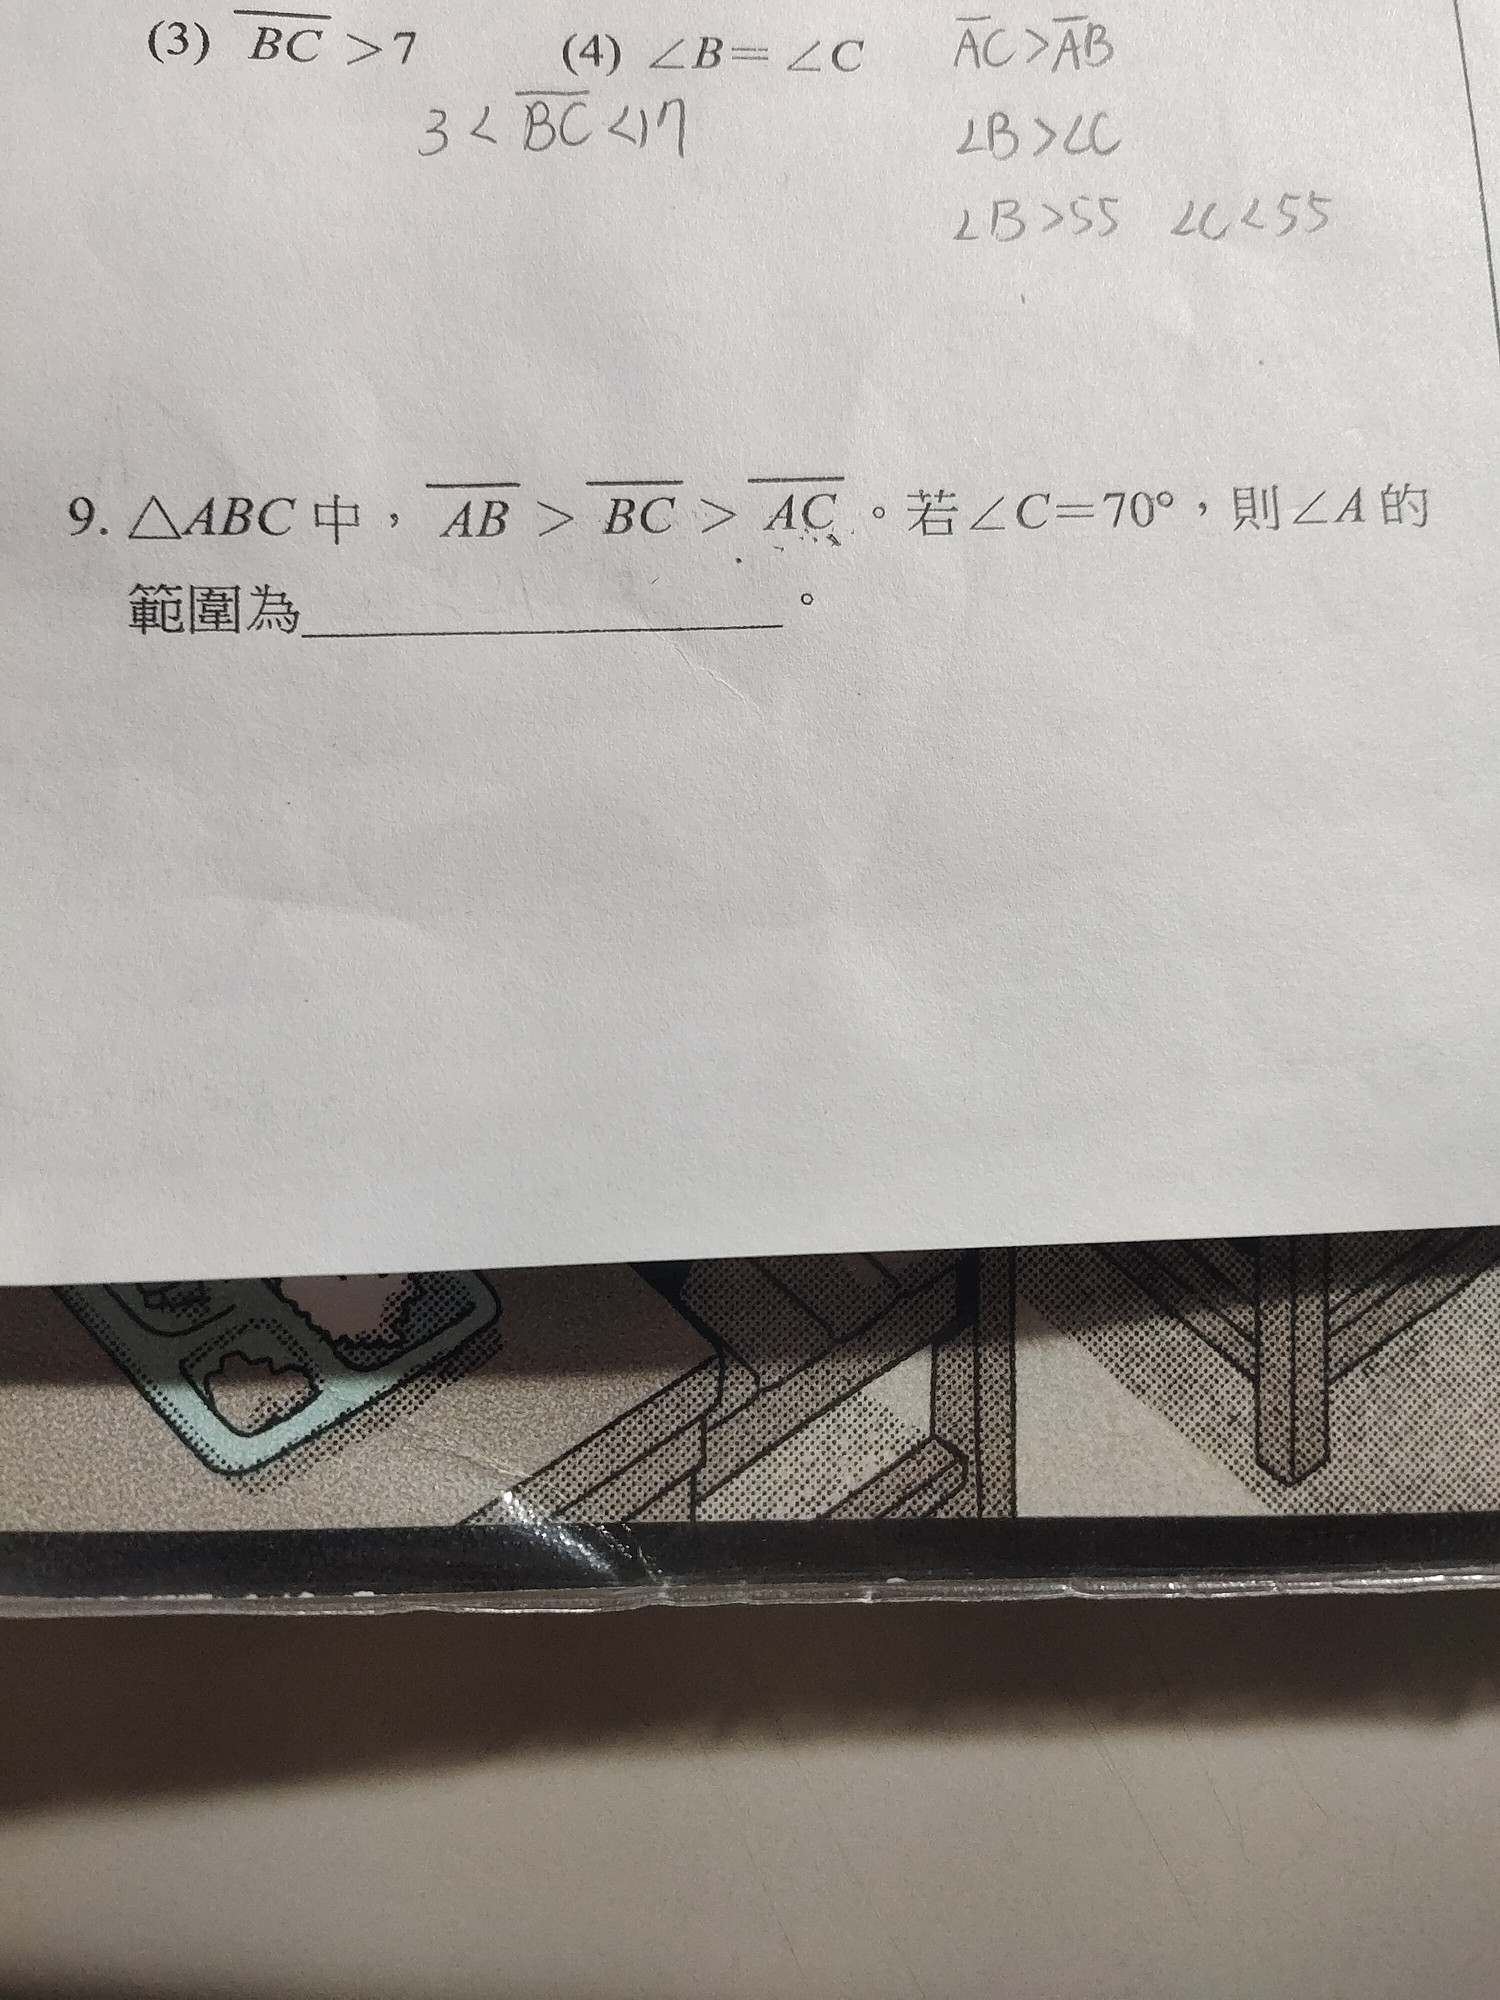 (3) BC > 7 (4) ∠B = ∠C AC > AB
3 < BC < 17 ∠B > ∠C
∠B > 55 ∠C < 55
9. △ABC 中， AB > BC > AC 。若∠C=70°，則∠A 的
範圍為＿＿＿＿＿＿＿＿。